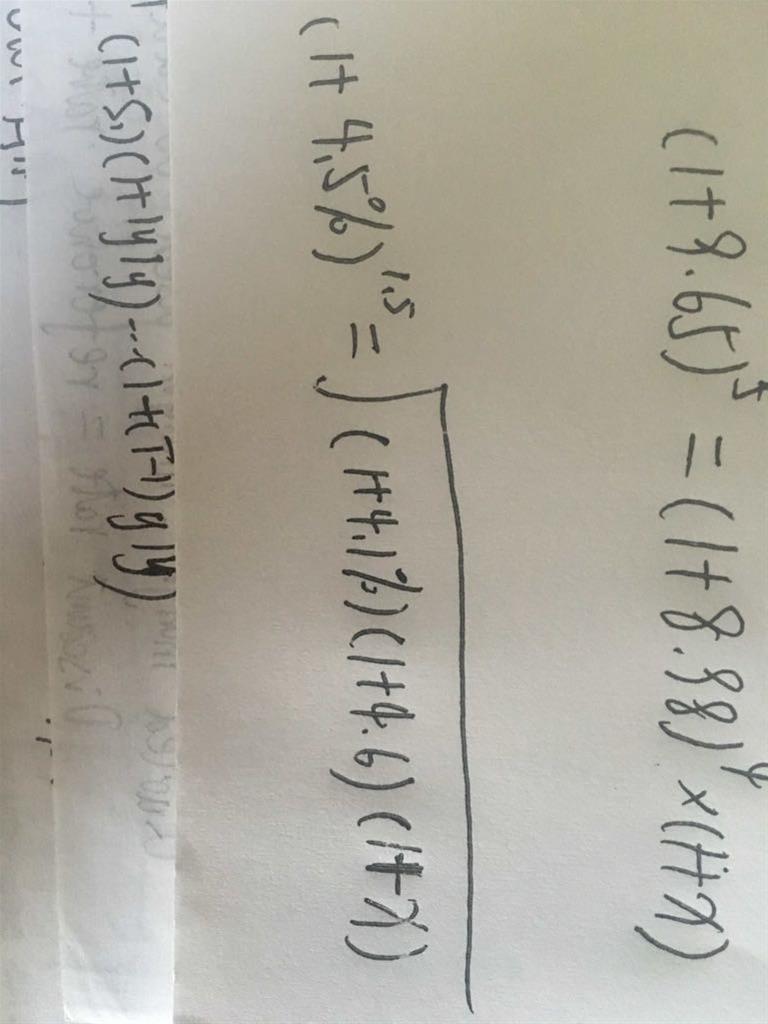 (1+9.65)⁵ = (1+8.98)⁴ ×(1+x)
(1+4.5%)^1.5 = √(1+4.1%)(1+4.6)(1+x)
(1+S₁)(1+1y1y)...(1+(T-1)y1y)